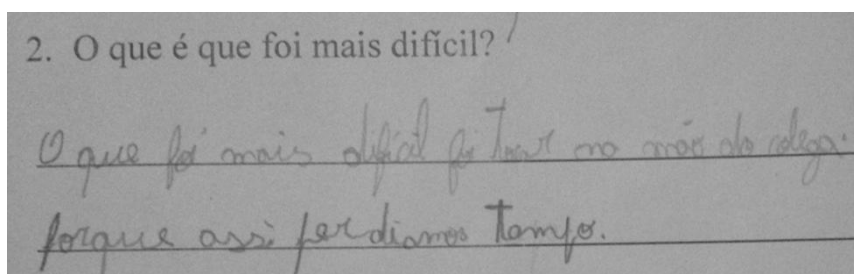 2. O que é que foi mais difícil?
O que foi mais difícil foi tocar na mão do colega.
porque assi perdiamos tempo.